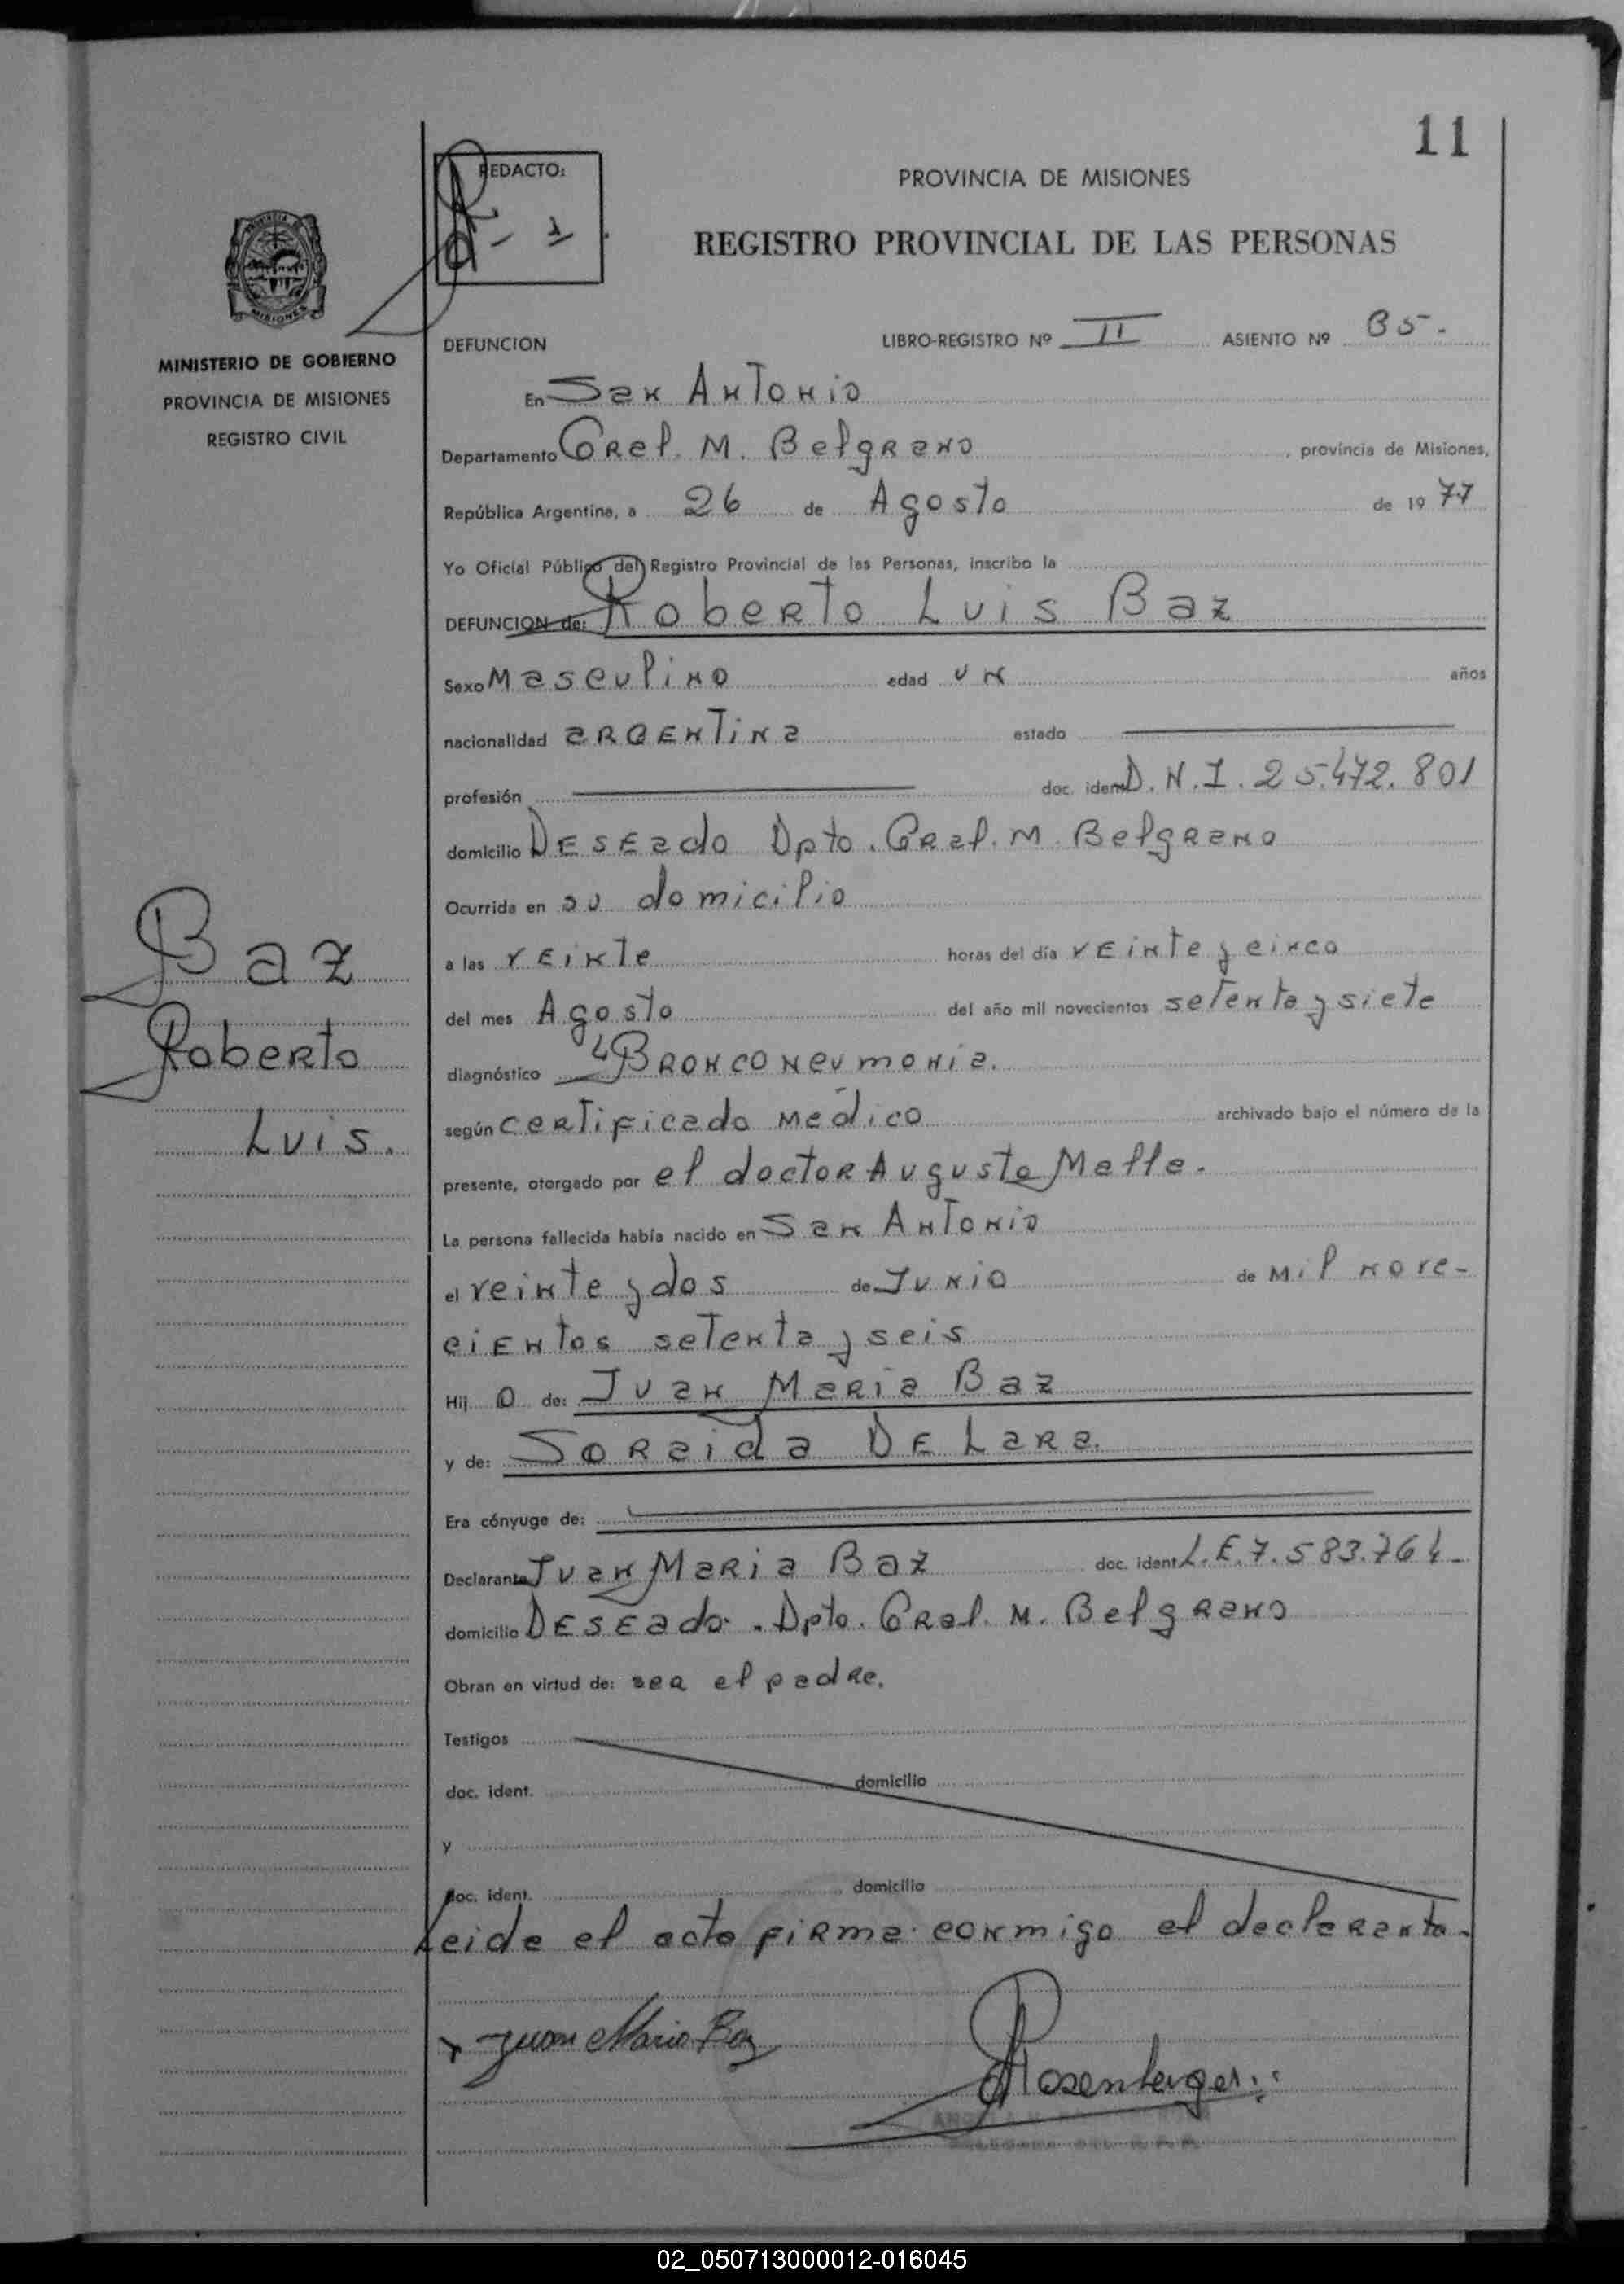 11
REDACTO:
PROVINCIA DE MISIONES
REGISTRO PROVINCIAL DE LAS PERSONAS
MISIONES
MINISTERIO DE GOBIERNO
PROVINCIA DE MISIONES
REGISTRO CIVIL
DEFUNCION LIBRO-REGISTRO Nº II ASIENTO Nº
En San Antonio
Departamento Gral. M. Belgrano, provincia de Misiones,
República Argentina, a 26 de Agosto de 1977
Yo Oficial Público del Registro Provincial de las Personas, inscribo la
DEFUNCION de: Roberto Luis Baz
Sexo Masculino edad un años
nacionalidad argentina estado
profesión doc. ident. D.N.I. 25.472.801
domicilio Deseado Dpto. Gral. M. Belgrano
Ocurrida en su domicilio
a las veinte horas del día veinte y cinco
del mes Agosto del año mil novecientos setenta y siete
diagnóstico Bronconeumonia.
según certificado médico archivado bajo el número de la
presente, otorgado por el doctor Augusto Melle.
La persona fallecida había nacido en San Antonio
el veinte y dos de Junio de mil nove-
cientos setenta y seis
Hijo de: Juan Maria Baz
y de: Soraida De Lara.
Era cónyuge de:
Declarante Juan Maria Baz doc. ident. L.E. 7.583.764-
domicilio Deseado. Dpto. Gral. M. Belgrano
Obran en virtud de: ser el padre.
Testigos
doc. ident. domicilio
y
doc. ident. domicilio
Leida el acta firma conmigo el declarante.
Juan Maria Baz
Rosenberger
Baz
Roberto
Luis.
02_050713000012-016045